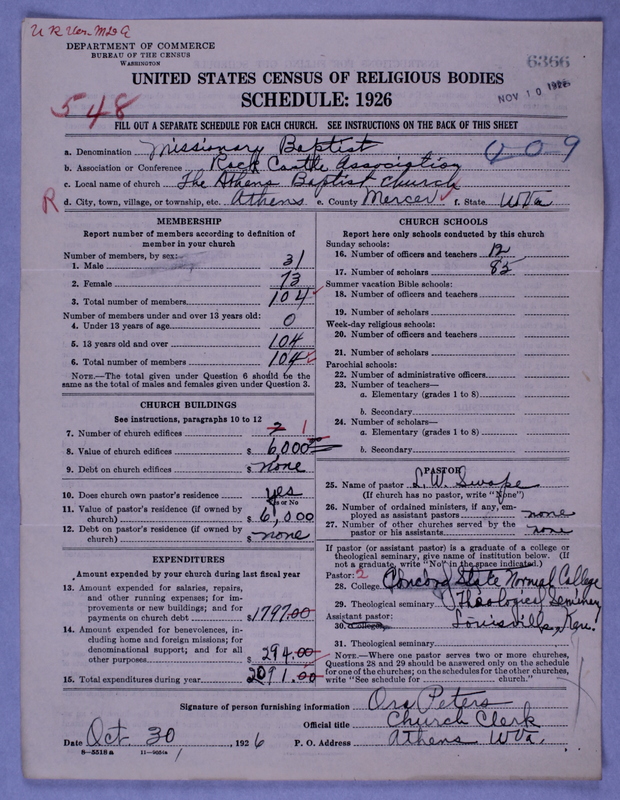 DEPARTMENT OF COMMERCE
BUREAU OF THE CENSUS
WASHINGTON
6366
UNITED STATES CENSUS OF RELIGIOUS BODIES
SCHEDULE: 1926
NOV 10 1926
548
FILL OUT A SEPARATE SCHEDULE FOR EACH CHURCH. SEE INSTRUCTIONS ON THE BACK OF THIS SHEET
a. Denomination Missionary Baptist
409
b. Association or Conference Rock Castle Association
c. Local name of church The Athens Baptist Church
R d. City, town, village, or township, etc. Athens e. County Mercer f. State W Va
MEMBERSHIP
Report number of members according to definition of
member in your church
Number of members, by sex:
1. Male 31
2. Female 73
3. Total number of members 104
Number of members under and over 13 years old:
4. Under 13 years of age 0
5. 13 years old and over 104
6. Total number of members 104
NOTE.—The total given under Question 6 should be the
same as the total of males and females given under Question 3.
CHURCH BUILDINGS
See instructions, paragraphs 10 to 12
7. Number of church edifices 2 1
8. Value of church edifices $ 6,000
9. Debt on church edifices $ none
10. Does church own pastor's residence yes
Yes or No
11. Value of pastor's residence (if owned by
church) $ 6,000
12. Debt on pastor's residence (if owned by
church) $ none
EXPENDITURES
Amount expended by your church during last fiscal year
13. Amount expended for salaries, repairs,
and other running expenses; for im-
provements or new buildings; and for
payments on church debt $ 1797.00
14. Amount expended for benevolences, in-
cluding home and foreign missions; for
denominational support; and for all
other purposes $ 294.00
15. Total expenditures during year $ 2091.00
CHURCH SCHOOLS
Report here only schools conducted by this church
Sunday schools:
16. Number of officers and teachers 12
17. Number of scholars 85
Summer vacation Bible schools:
18. Number of officers and teachers
19. Number of scholars
Week-day religious schools:
20. Number of officers and teachers
21. Number of scholars
Parochial schools:
22. Number of administrative officers
23. Number of teachers—
a. Elementary (grades 1 to 8)
b. Secondary
24. Number of scholars—
a. Elementary (grades 1 to 8)
b. Secondary
PASTOR
25. Name of pastor W. Swope
(If church has no pastor, write "None")
26. Number of ordained ministers, if any, em-
ployed as assistant pastors none
27. Number of other churches served by the
pastor or his assistants none
If pastor (or assistant pastor) is a graduate of a college or
theological seminary, give name of institution below. (If
not a graduate, write "No" in the space indicated.)
Pastor: 2
28. College Concord State Normal College
29. Theological seminary Theological Seminary
Assistant pastor: Louisville, Ken.
30. College
31. Theological seminary
NOTE.—Where one pastor serves two or more churches,
Questions 28 and 29 should be answered only on the schedule
for one of the churches; on the schedules for the other churches,
write "See schedule for church."
Signature of person furnishing information Ora Peters
Official title Church Clerk
Date Oct. 30, 1926 P. O. Address Athens W Va.
8—5518 a 11—9054a